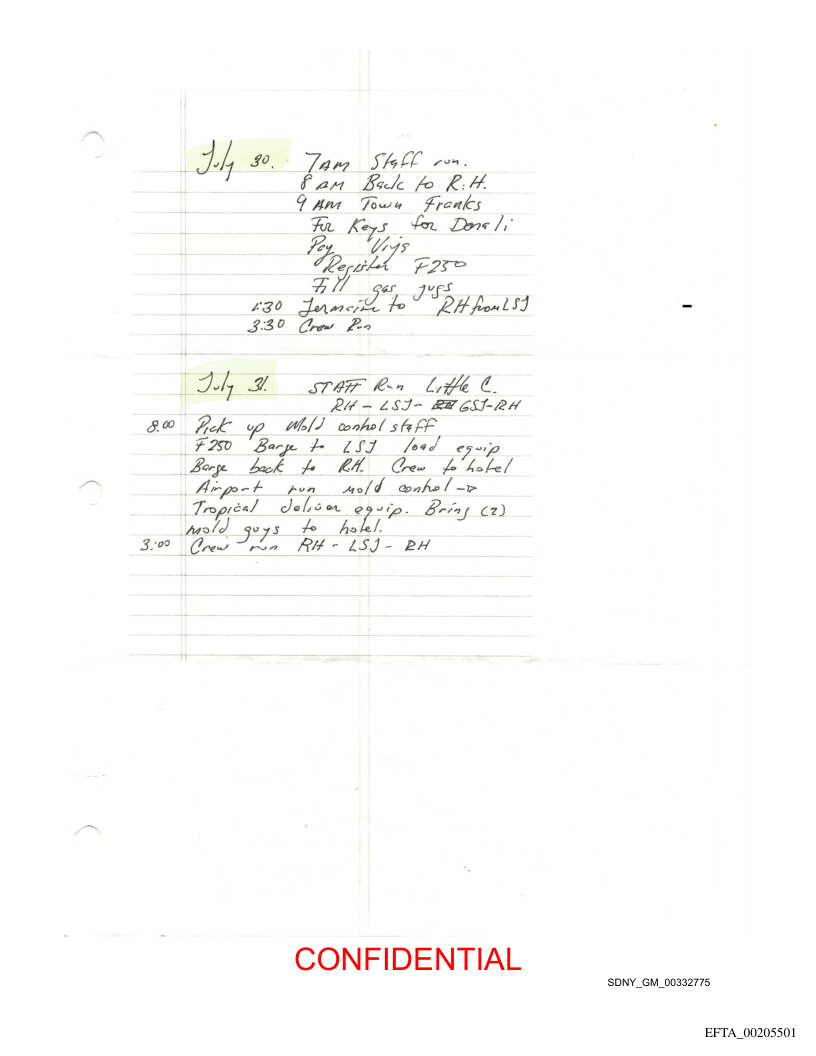 July 30. 7AM Staff run.
8 AM Back to R.H.
9 AM Town Franks
For Keys for Denali
Pay Viya
Register F250
Fill gas jugs
1:30 Jermaine to RH from LSJ
3:30 Crew Run
July 31. STAFF Run Little C.
RH - LSJ - GSJ-RH
8:00 Pick up Mold control staff
F250 Barge to LSJ load equip
Barge back to R.H. Crew to hotel
Airport run mold control →
Tropical deliver equip. Bring (2)
mold guys to hotel.
3:00 Crew run RH - LSJ - RH
CONFIDENTIAL
SDNY_GM_00332775
EFTA_00205501